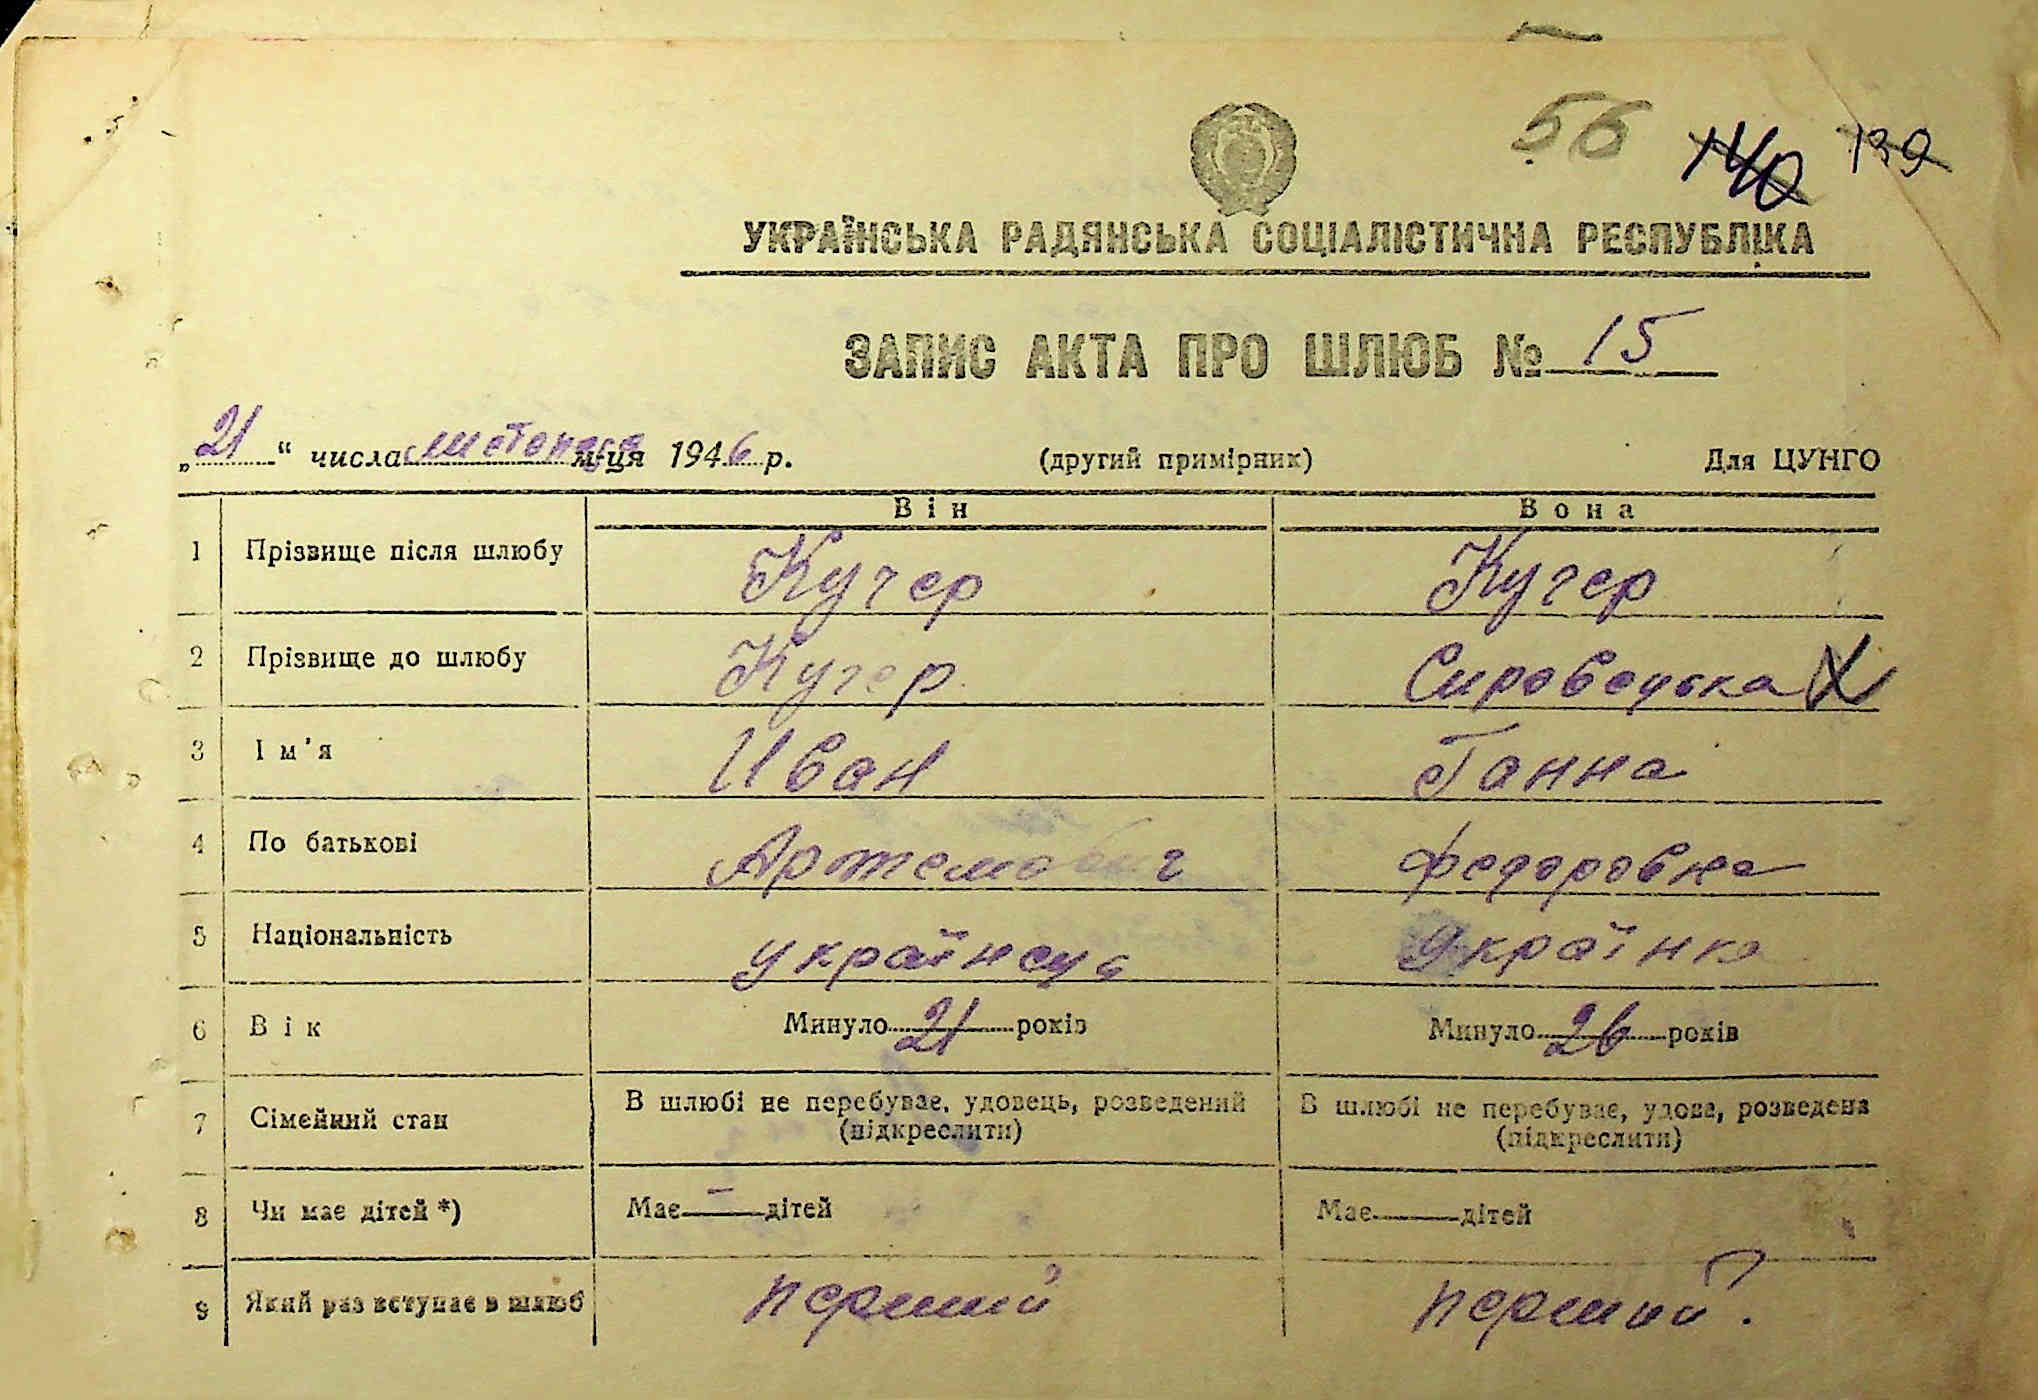 56 140 139
УКРАЇНСЬКА РАДЯНСЬКА СОЦІАЛІСТИЧНА РЕСПУБЛІКА
ЗАПИС АКТА ПРО ШЛЮБ № 15
„21“ числа листопада м-ця 1946 р. (другий примірник) Для ЦУНГО
Він Вона
1 Прізвище після шлюбу Кучер Кучер
2 Прізвище до шлюбу Кучер Сировецька
3 Ім'я Иван Ганна
4 По батькові Артемович Федоровна
5 Національність українець українка
6 Вік Минуло 21 років Минуло 26 років
7 Сімейний стан В шлюбі не перебуває, удовець, розведений В шлюбі не перебуває, удова, розведена
(підкреслити) (підкреслити)
8 Чи має дітей *) Має — дітей Має дітей
9 Який раз вступає в шлюб перший перший.